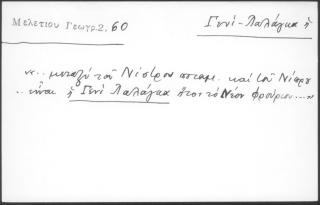 Μελετίου Γεωγρ. 2, 60
Γενί-Παλάγκα ἡ
«.. μεταξὺ τοῦ Νίστρου ποταμ. καὶ τοῦ
.. εἶναι ἡ Γενὶ Παλάγκα ἤτοι τὸ Νέον Φρούριον....»